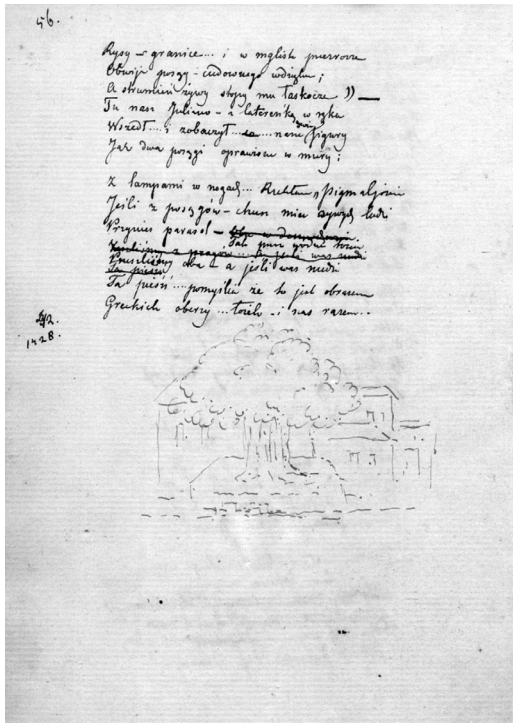 56.
Rysy – granice... i w mglisté przezrocze
Obwija posąg – cudownego wdzięku;
A strumień żywy stopy mu łaskocze )) —
Tu nasz Juliusz – z latereńką w ręku
Wszedł... i zobaczył – nasze figury
Jak dwa posągi oprawione w mury;
Z lampami w nogach... Rzekłem „Pigmaljonie
Jeśli z posągów – chcesz mieć żywych ludzi
Przynieś parasol –
Tak przez
oba – a jeśli was nudzi
Ta pieśń... pomyślcie że to jest obrazem
Greckich oberży... łoża – i nas razem..
1428.